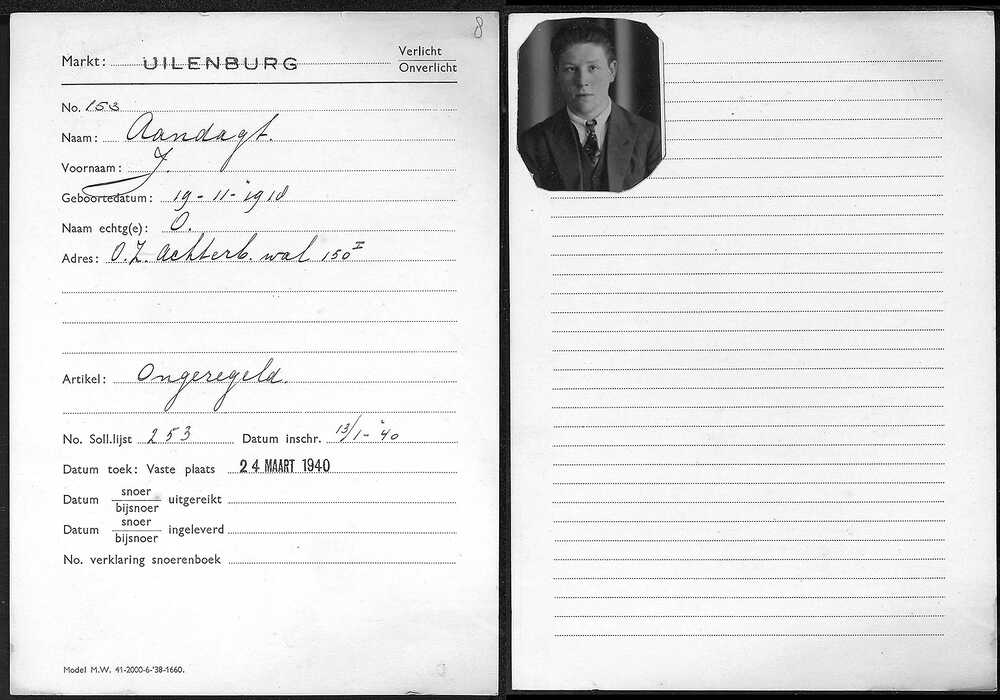 8
Markt: UILENBURG Verlicht
Onverlicht
No. 153
Naam: Aandagt.
Voornaam: J.
Geboortedatum: 19-11-1918
Naam echtg(e): O.
Adres: O.Z. Achterb. wal 150 I
Artikel: Ongeregeld.
No. Soll.lijst 253 Datum inschr. 13/1-'40
Datum toek: Vaste plaats 24 MAART 1940
Datum snoer
bijsnoer uitgereikt
Datum snoer
bijsnoer ingeleverd
No. verklaring snoerenboek
Model M.W. 41-2000-6-'38-1660.